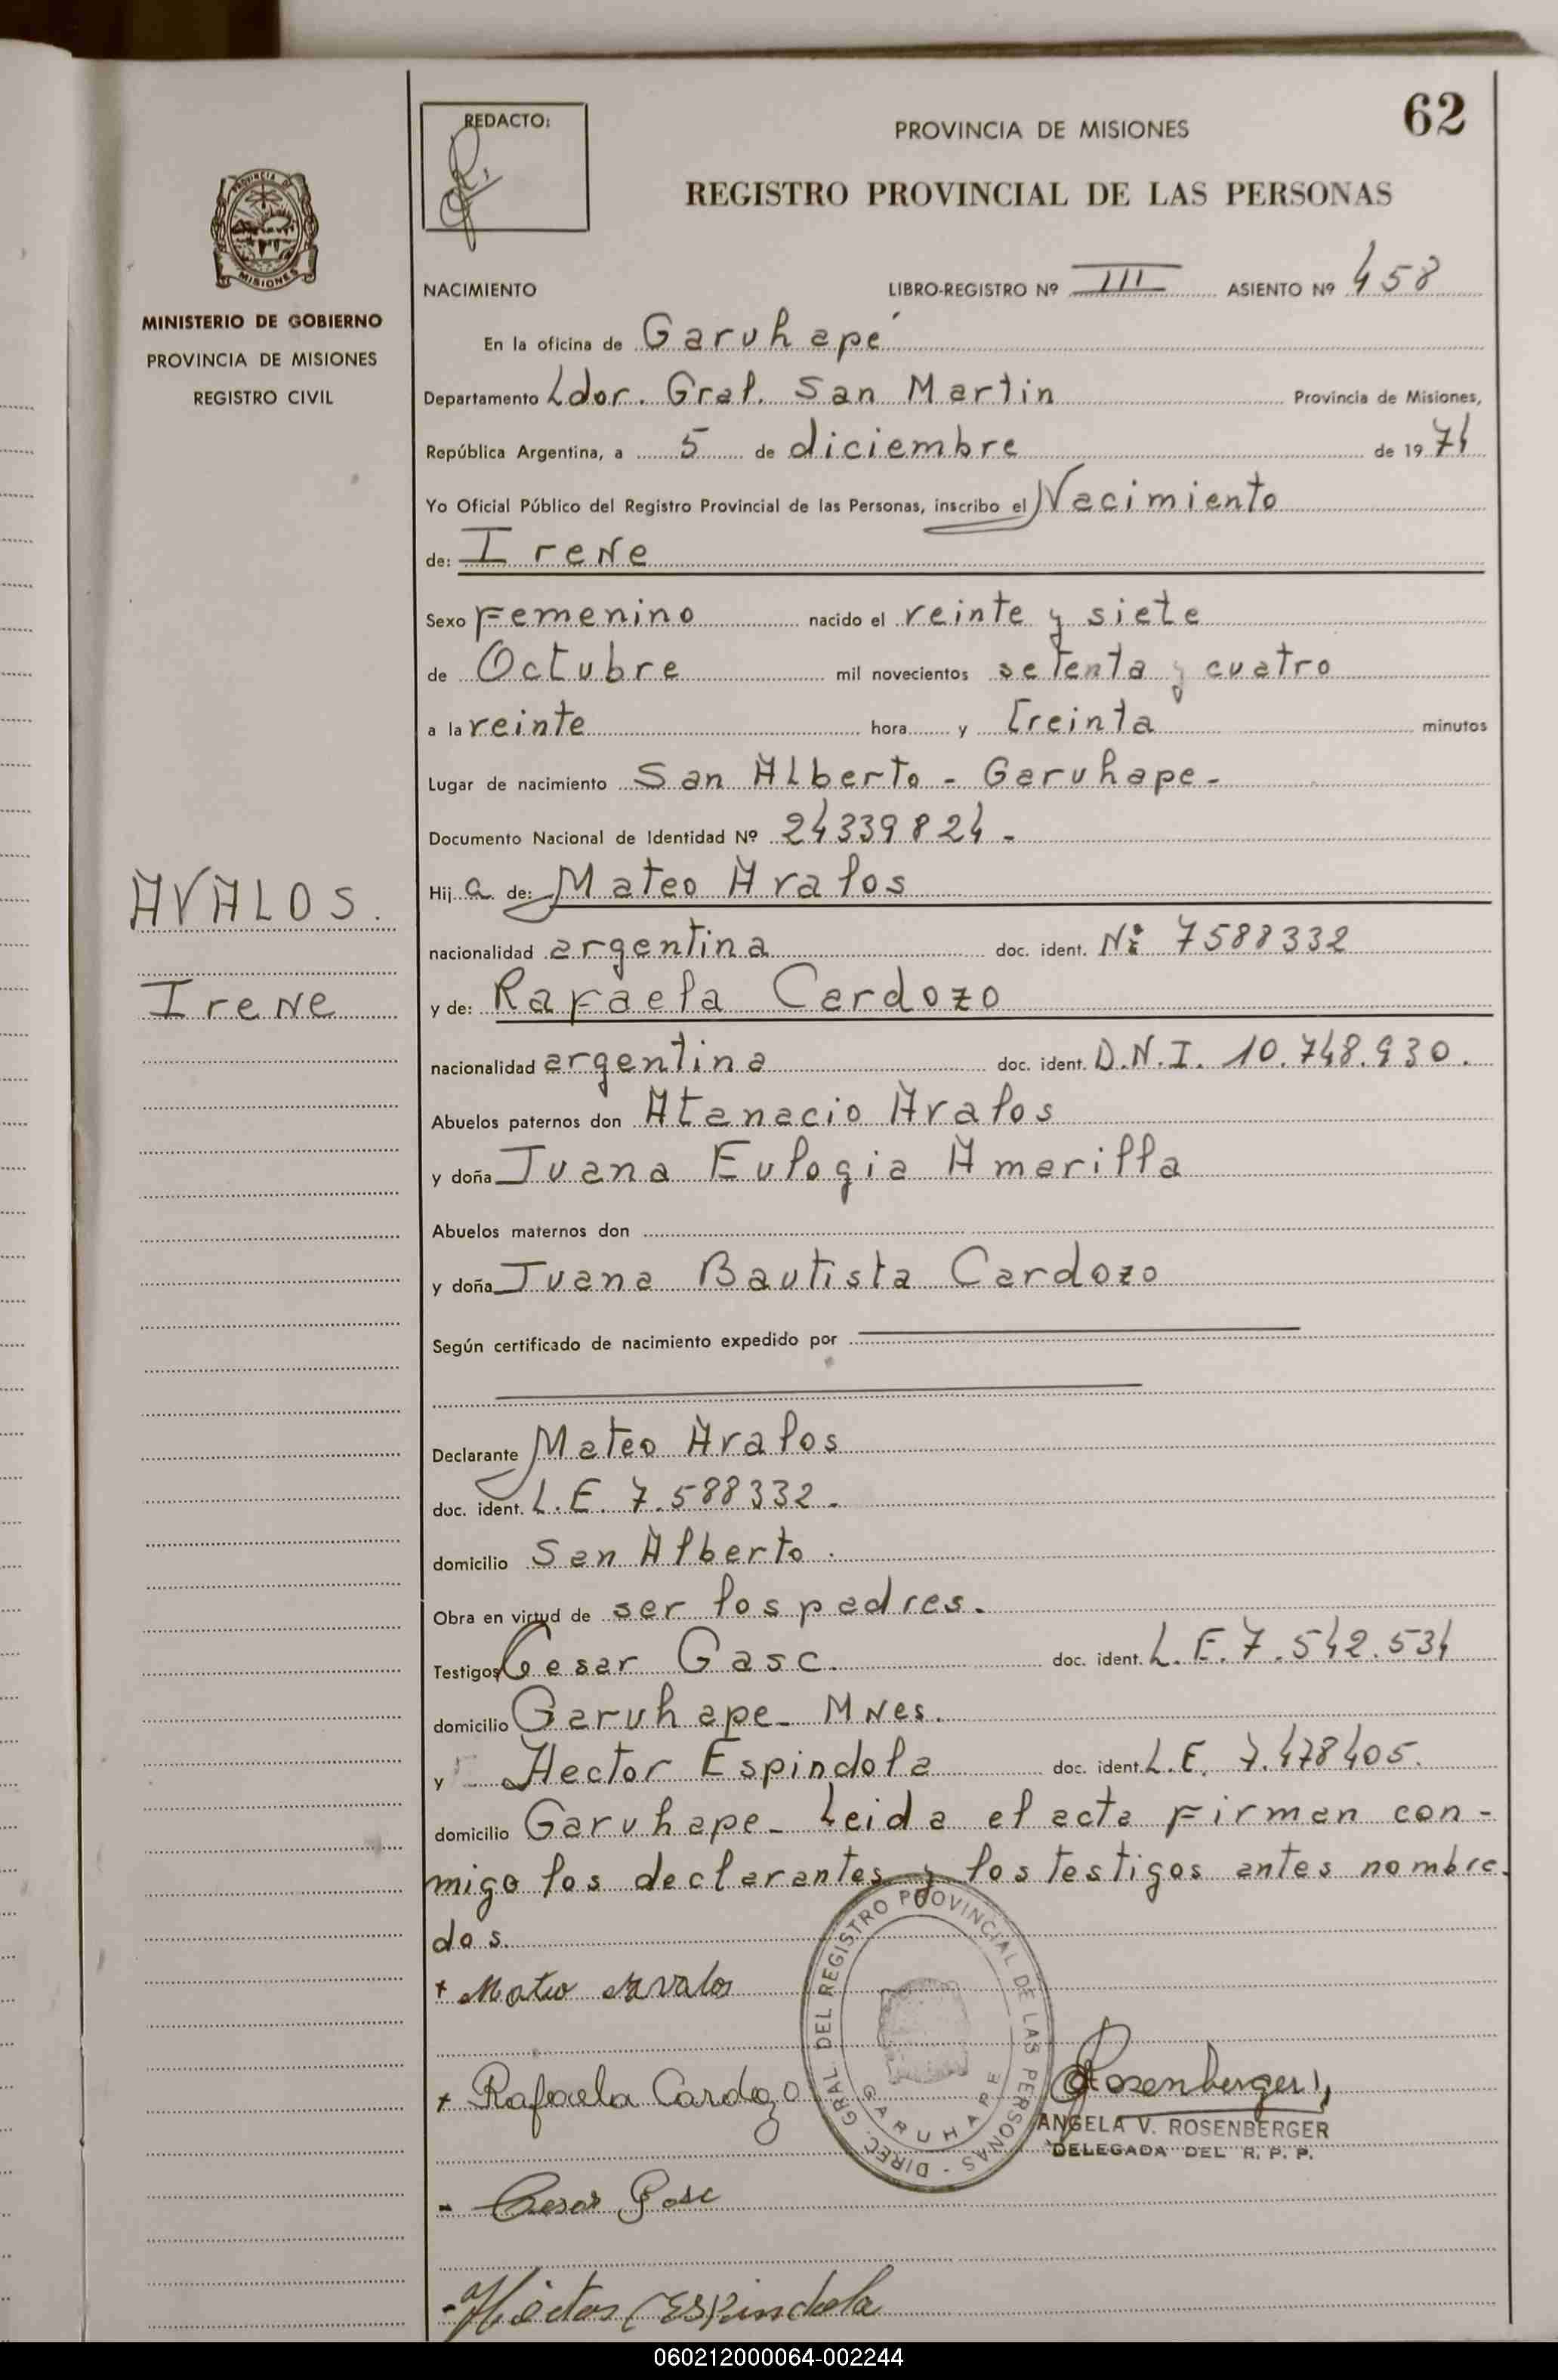 62
REDACTO:
PROVINCIA DE MISIONES
REGISTRO PROVINCIAL DE LAS PERSONAS
PROVINCIA DE MISIONES
MINISTERIO DE GOBIERNO
PROVINCIA DE MISIONES
REGISTRO CIVIL
NACIMIENTO LIBRO-REGISTRO Nº III ASIENTO Nº 458
En la oficina de Garuhapé
Departamento Ldor. Gral. San Martin Provincia de Misiones,
República Argentina, a 5 de diciembre de 1974
Yo Oficial Público del Registro Provincial de las Personas, inscribo el Nacimiento
de: Irene
Sexo Femenino nacido el veinte y siete
de Octubre mil novecientos setenta y cuatro
a la veinte hora y treinta minutos
Lugar de nacimiento San Alberto - Garuhape -
Documento Nacional de Identidad Nº 24339824 -
AVALOS.
Irene
Hij a de: Mateo Avalos
nacionalidad argentina doc. ident. Nº 7588332
y de: Rafaela Cardozo
nacionalidad argentina doc. ident. D.N.I. 10.748.930.
Abuelos paternos don Atanacio Avalos
y doña Juana Eulogia Amarilla
Abuelos maternos don
y doña Juana Bautista Cardozo
Según certificado de nacimiento expedido por
Declarante Mateo Avalos
doc. ident. L.E. 7.588332.
domicilio San Alberto.
Obra en virtud de ser los padres.
Testigos Cesar Gasc. doc. ident. L.E. 7.542.534
domicilio Garuhape - MNes.
y Hector Espindola doc. ident. L.E. 7.478405.
domicilio Garuhape - Leida el acta firman con-
migo los declarantes y los testigos antes nombra-
dos.
+ Mateo Avalos
DIREC. GRAL. DEL REGISTRO PROVINCIAL DE LAS PERSONAS - GARUHAPE
+ Rafaela Cardozo
Rosenberger
ANGELA V. ROSENBERGER
DELEGADA DEL R. P. P.
- Cesar Gasc
- Héctor Espindola
060212000064-002244